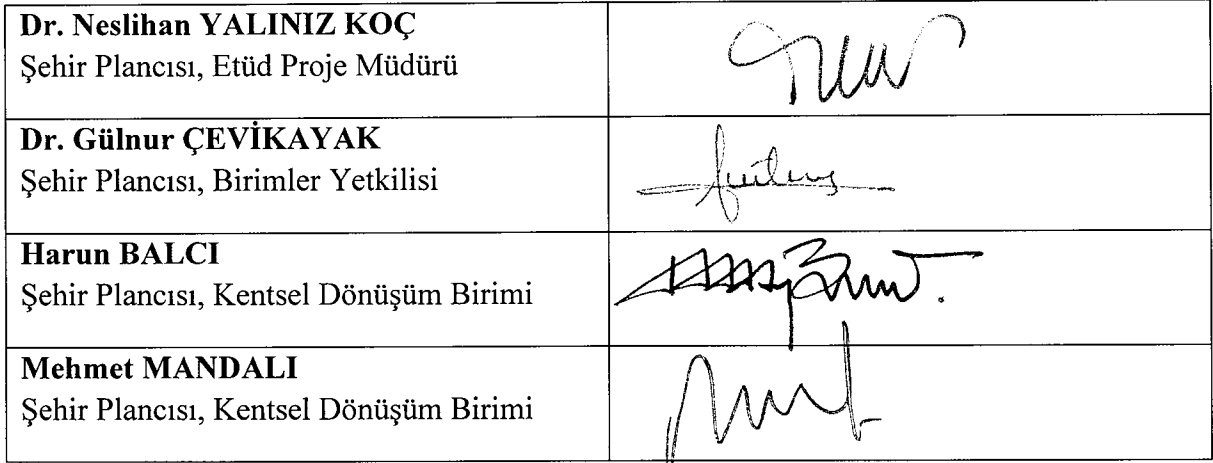 Dr. Neslihan YALINIZ KOÇ
Şehir Plancısı, Etüd Proje Müdürü
Dr. Gülnur ÇEVİKAYAK
Şehir Plancısı, Birimler Yetkilisi
Harun BALCI
Şehir Plancısı, Kentsel Dönüşüm Birimi
Mehmet MANDALI
Şehir Plancısı, Kentsel Dönüşüm Birimi